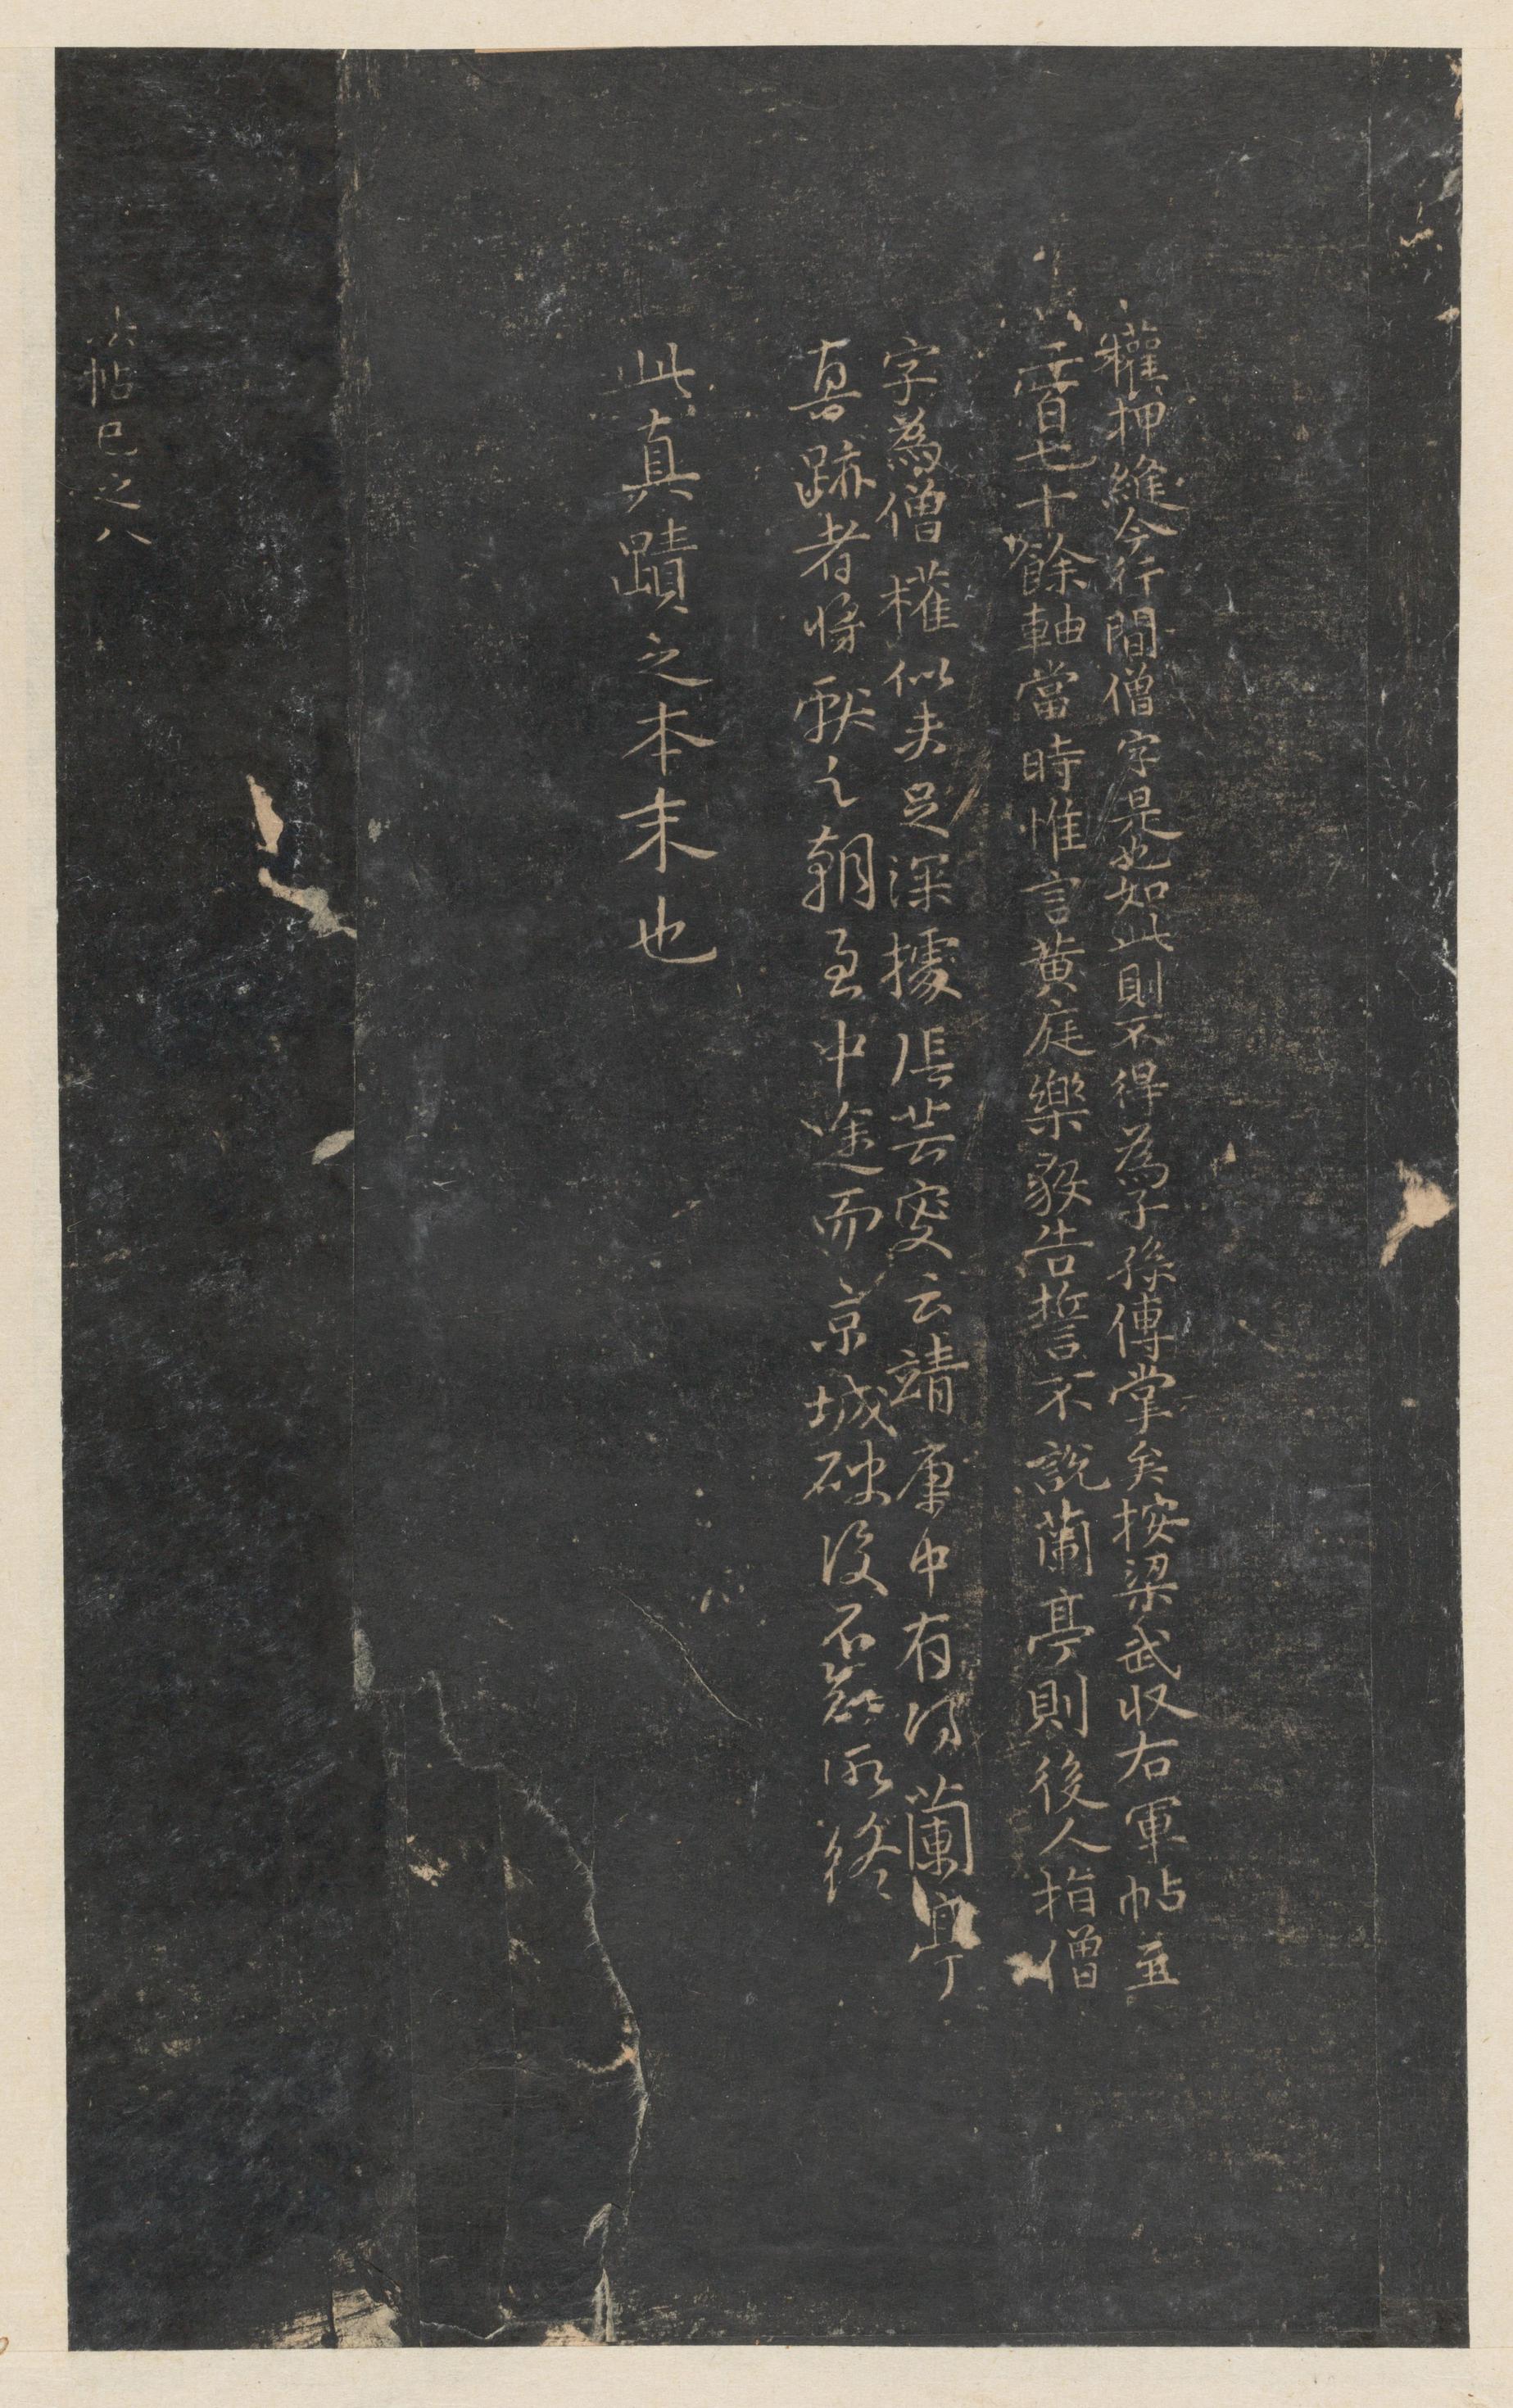 權押縫今行間僧字是也如此則不得為子孫傳掌矣按梁武收右軍帖至
二百七十餘軸當時惟言黃庭樂毅告誓不說蘭亭則後人指僧
字為僧權似未足深據張芸叟云靖康中有得蘭亭
真跡者將獻之朝至中途而京城破後不知所終
此真蹟之本末也
法帖巳之八